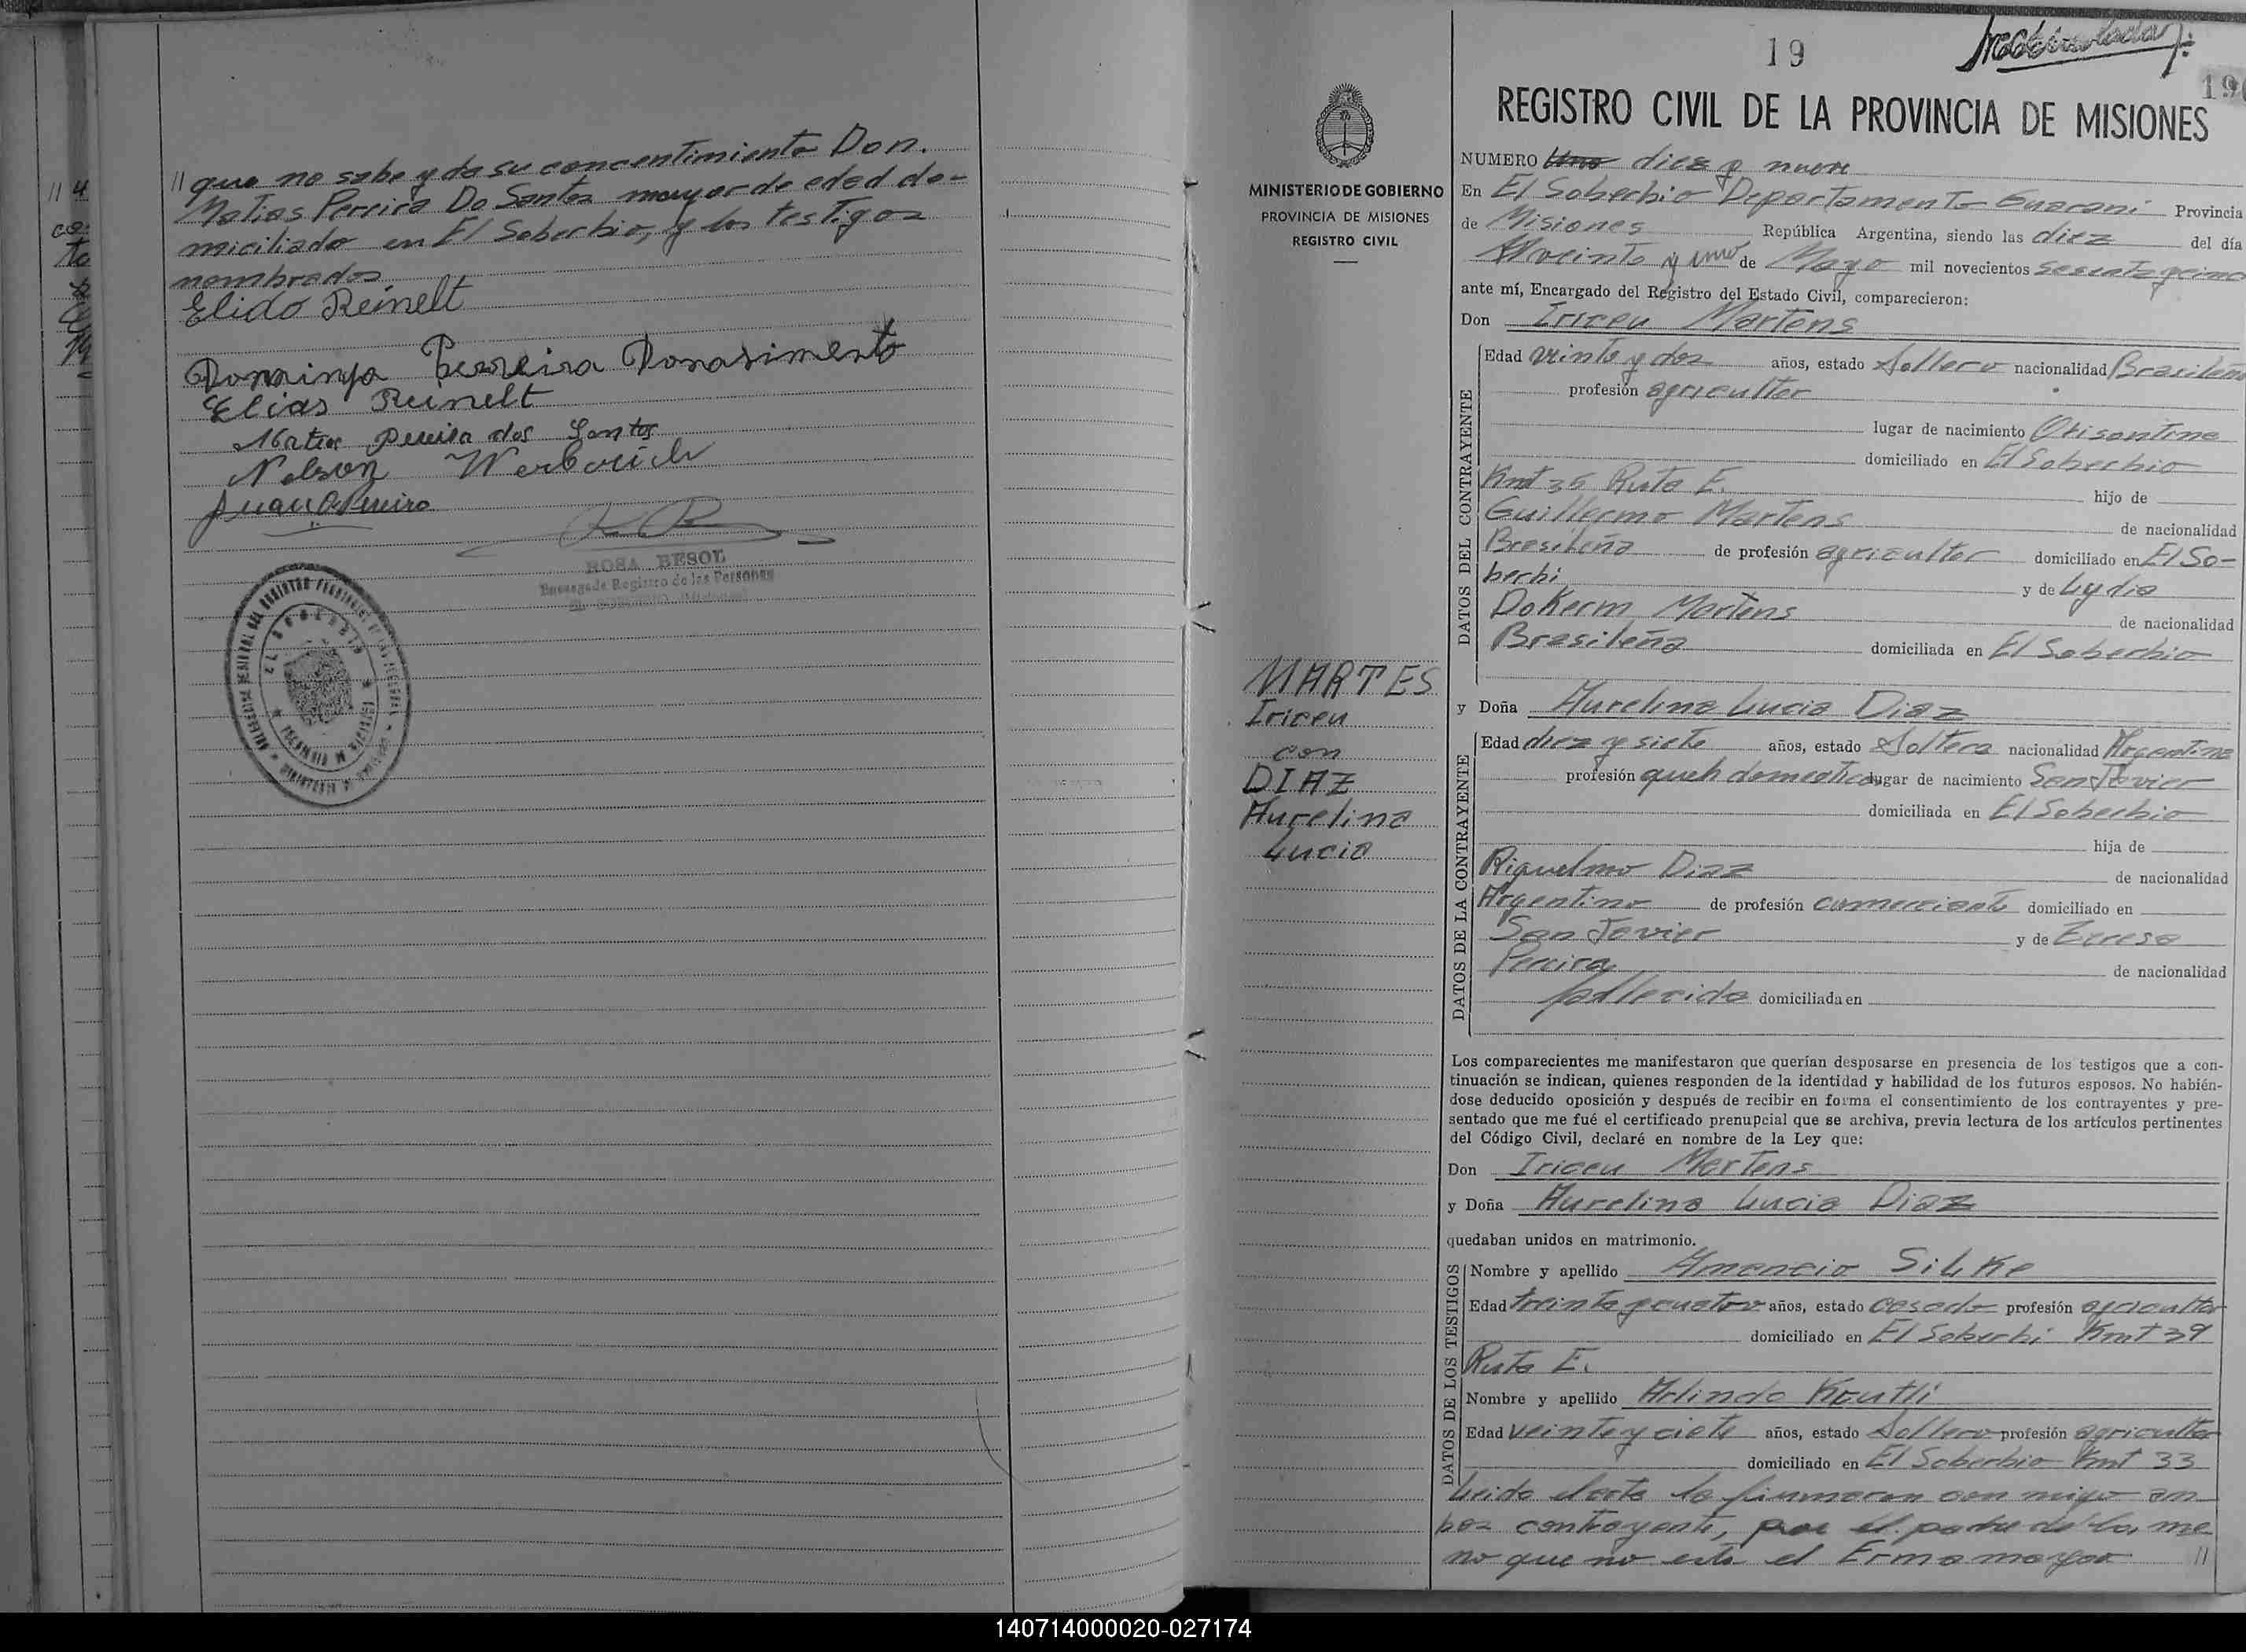 // que no sabe y da su concentimiento Don.
Matias Pereira Do Santos mayor de eded do-
miciliado en El Soberbio, y los testigos
nombrados
Elido Reinelt
Perreira
Elias Reinelt
Matias Pereira dos Santos
Nelson
ROSA BESOL
Encargada Registro de las Personas
19
REGISTRO CIVIL DE LA PROVINCIA DE MISIONES
MINISTERIO DE GOBIERNO
PROVINCIA DE MISIONES
REGISTRO CIVIL
NUMERO Uno diez y nueve
En El Soberbio Departamento Guarani Provincia
de Misiones República Argentina, siendo las diez del día
y uno de Mayo mil novecientos
ante mí, Encargado del Registro del Estado Civil, comparecieron:
Don Iriceu Martens
DATOS DEL CONTRAYENTE
Edad veinte y dos años, estado Soltero nacionalidad Brasileño
profesión agricultor
lugar de nacimiento
domiciliado en El Soberbio
Kmt 35 Ruta E. hijo de
Guillermo Martens de nacionalidad
Brasileña de profesión agricultor domiciliado en El So-
berbi y de Lydia
Dokerm Martens de nacionalidad
Brasileña domiciliada en El Soberbio
MARTES
Iriceu
con
DIAZ
Aurelina
Lucia
y Doña Aurelina Lucia Diaz
DATOS DE LA CONTRAYENTE
Edad diez y siete años, estado Soltera nacionalidad Argentina
profesión queh domesticos lugar de nacimiento San Javier
domiciliada en El Soberbio
hija de
Riquelmo Diaz de nacionalidad
Argentino de profesión comerciante domiciliado en
San Javier y de Teresa
Pereira de nacionalidad
fallecida domiciliada en
Los comparecientes me manifestaron que querían desposarse en presencia de los testigos que a con-
tinuación se indican, quienes responden de la identidad y habilidad de los futuros esposos. No habién-
dose deducido oposición y después de recibir en forma el consentimiento de los contrayentes y pre-
sentado que me fué el certificado prenupcial que se archiva, previa lectura de los artículos pertinentes
del Código Civil, declaré en nombre de la Ley que:
Don Iriceu Martens
y Doña Aurelina Lucia Diaz
quedaban unidos en matrimonio.
DATOS DE LOS TESTIGOS
Nombre y apellido Amancio Silke
Edad treinta y cuatro años, estado casado profesión agricultor
domiciliado en El Soberbi Kmt 39
Ruta E.
Nombre y apellido Arlindo
Edad veinte y ciete años, estado Soltero profesión agricultor
domiciliado en El Soberbio Kmt 33
Leida el acta la firmaron con migo am
bos contrayente, por el padre de la me
no que no esta el Ermo mayor //
140714000020-027174